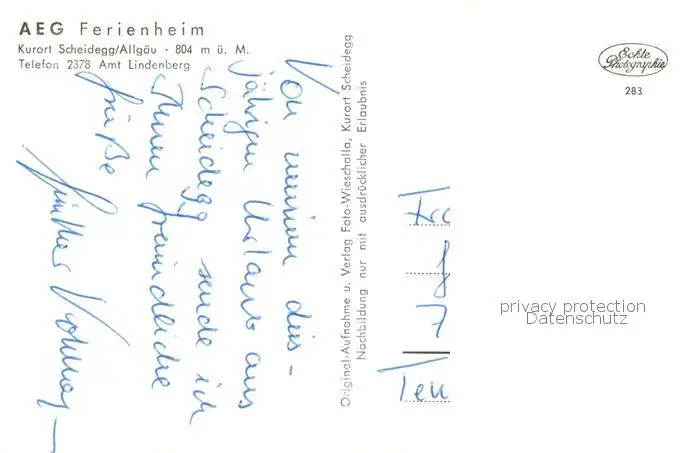 AEG Ferienheim
Kurort Scheidegg/Allgäu · 804 m ü. M.
Telefon 2378 Amt Lindenberg
Von meinem dies-
jährigen Urlaub aus
Scheidegg sende ich
Ihnen freundliche
Grüße
Günther
Original-Aufnahme u. Verlag Foto-Wieschalla, Kurort Scheidegg
Nachbildung nur mit ausdrücklicher Erlaubnis
Echte
Photographie
283
Fra
8
7
Ten
privacy protection
Datenschutz